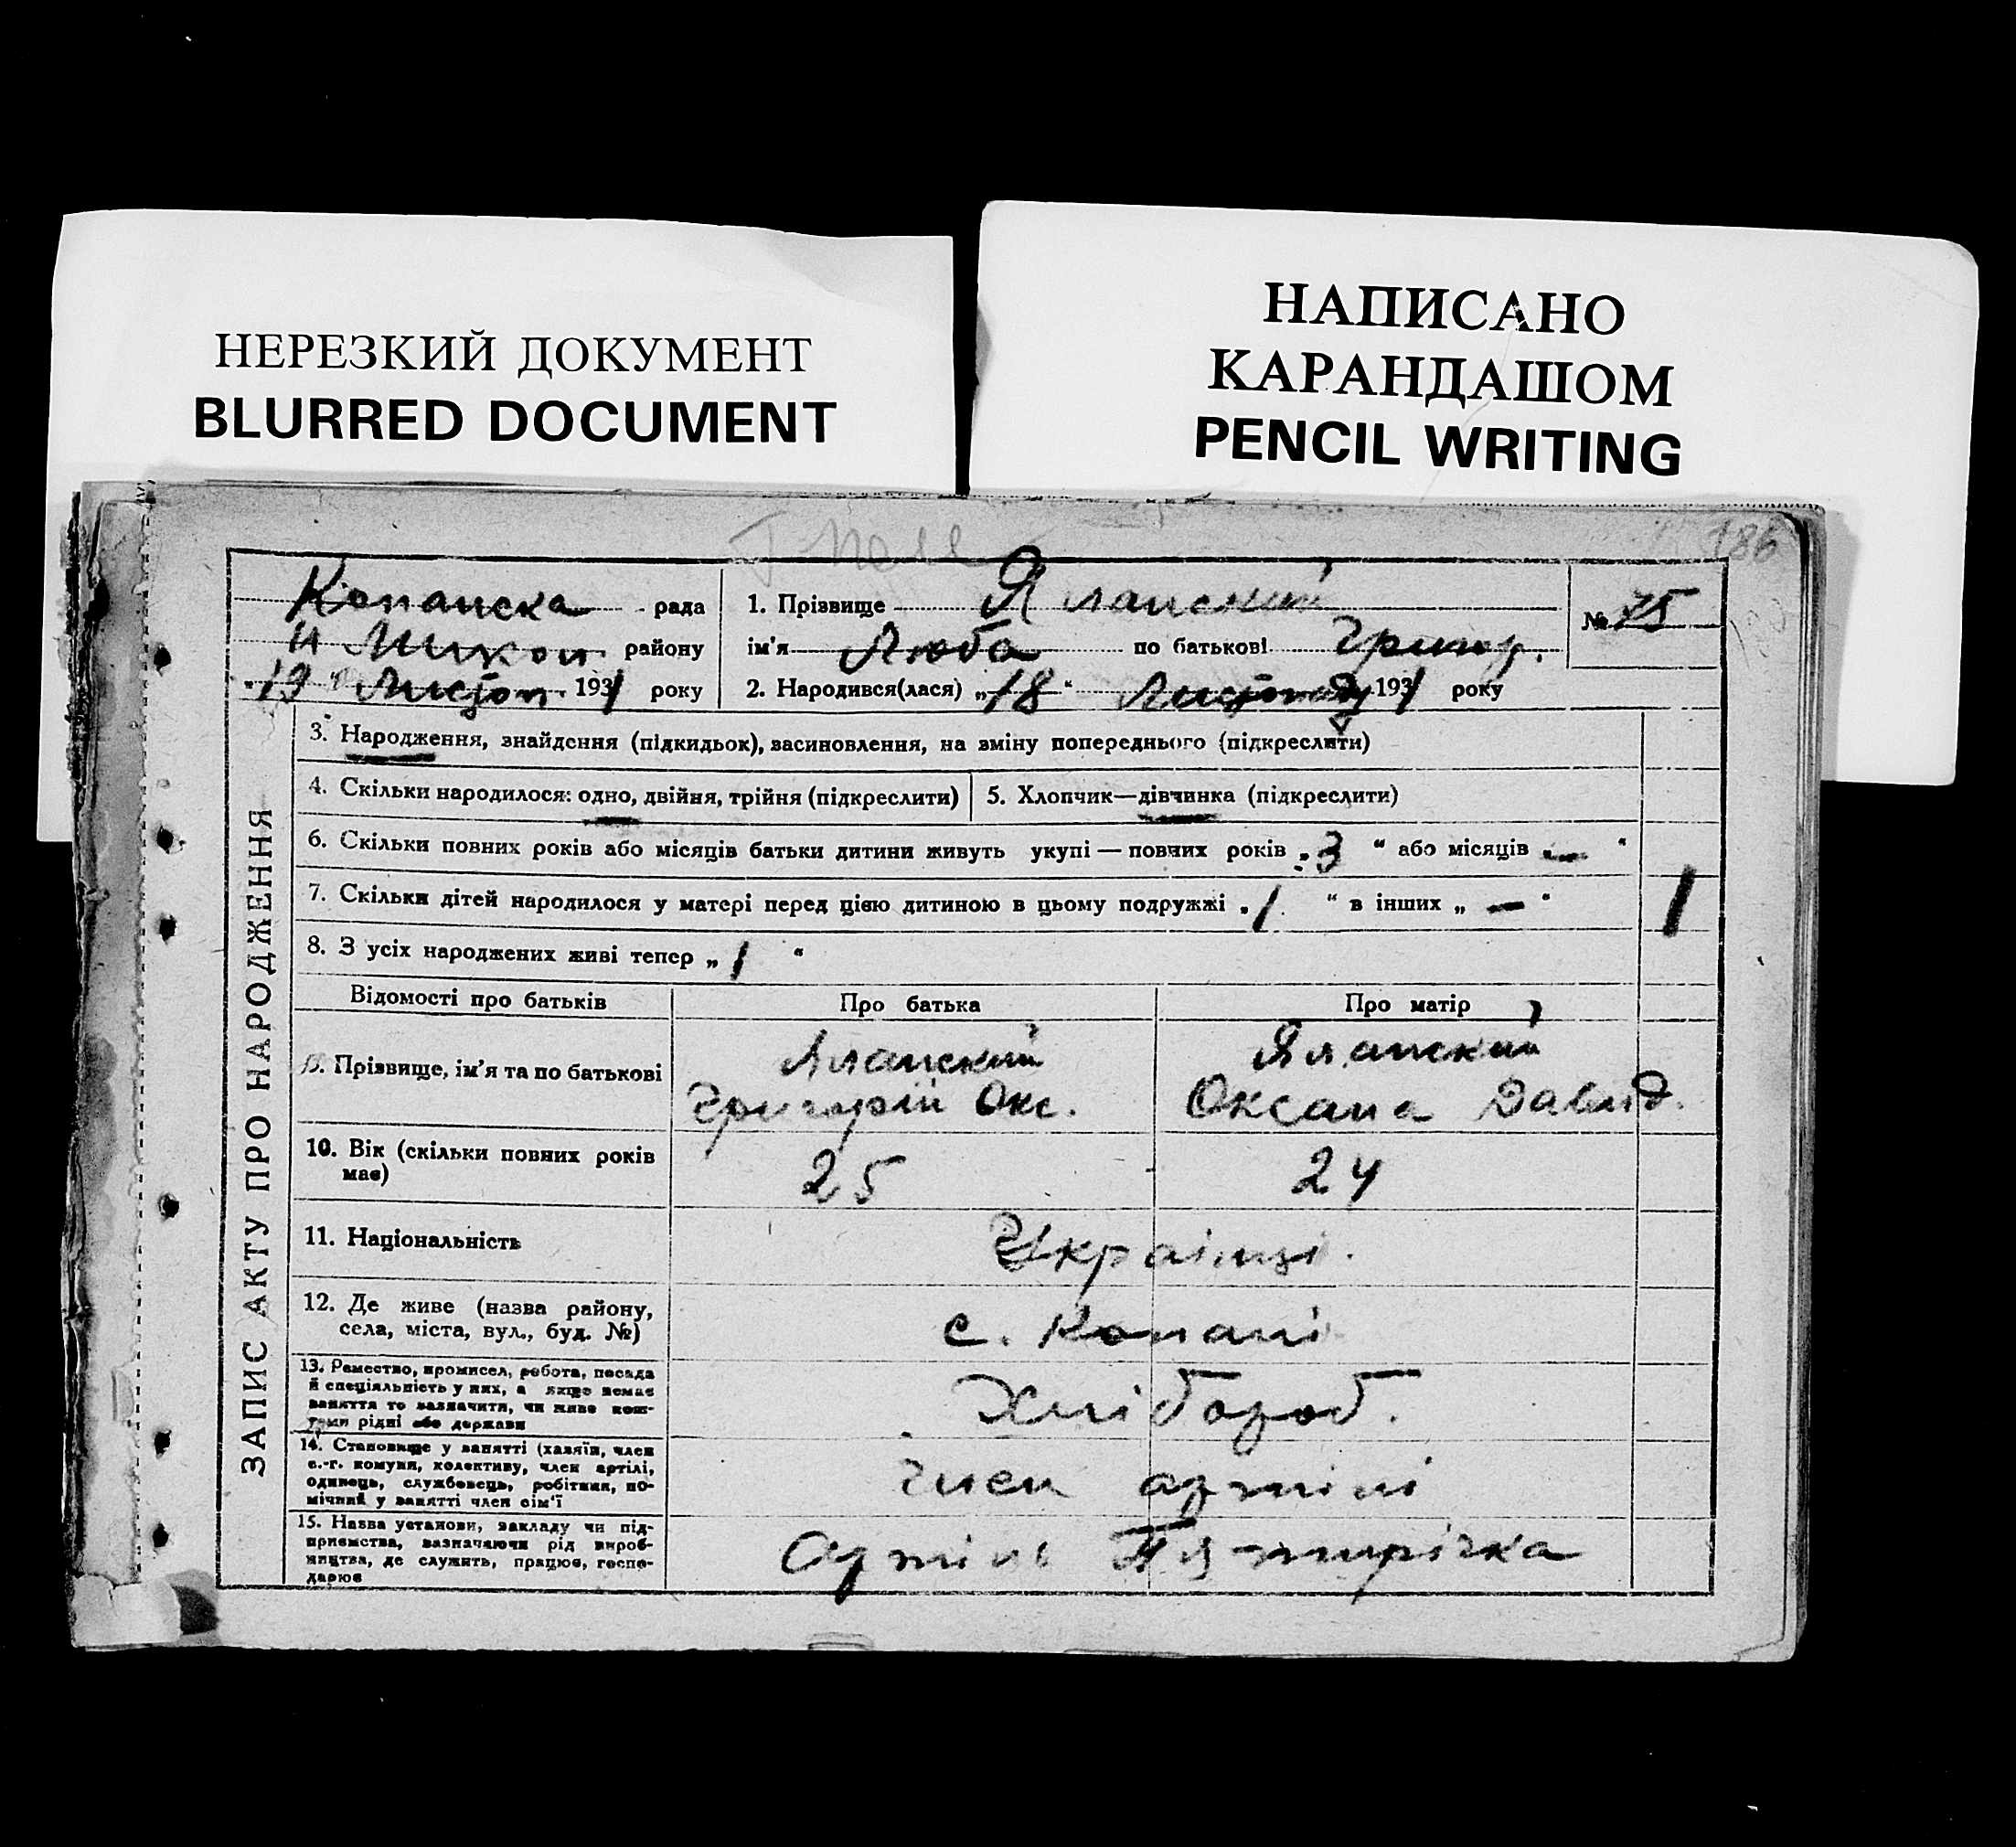 НЕРЕЗКИЙ ДОКУМЕНТ
BLURRED DOCUMENT
НАПИСАНО
КАРАНДАШОМ
PENCIL WRITING
186
Копанска рада
Н Микоп району
"19" Листоп. 1931 року
1. Прізвище Яланский
ім'я Люба по батькові Григор.
2. Народився(лася) „18" Листопаду 1931 року
№ 75
ЗАПИС АКТУ ПРО НАРОДЖЕННЯ
3. Народження, знайдення (підкидьок), засиновлення, на зміну попереднього (підкреслити)
4. Скільки народилося: одно, двійня, трійня (підкреслити)
5. Хлопчик—дівчинка (підкреслити)
6. Скільки повних років або місяців батьки дитини живуть укупі — повних років „3" або місяців „—"
7. Скільки дітей народилося у матері перед цією дитиною в цьому подружжі „1" в інших „—"
1
8. З усіх народжених живі тепер „1"
Відомості про батьків Про батька Про матір
9. Прізвище, ім'я та по батькові
Яланский
Григорій Окс.
Яланский
Оксана Давид.
10. Вік (скільки повних років
має)
25
24
11. Національність
Українці.
12. Де живе (назва району,
села, міста, вул., буд. №)
с. Копані
13. Ремество, промисел, робота, посада
й спеціяльність у них, а якщо немає
заняття то зазначити, чи живе кош-
тами рідні або держави
Хлібороб.
14. Становище у занятті (хазяїн, член
с.-г. комуни, колективу, член артілі,
одинець, службовець, робітник, по-
мічний у занятті член сім'ї
член артілі
15. Назва установи, закладу чи під-
приємства, зазначаючи рід вироб-
ництва, де служить, працює, госпо-
дарює
Артіль Пятирічка